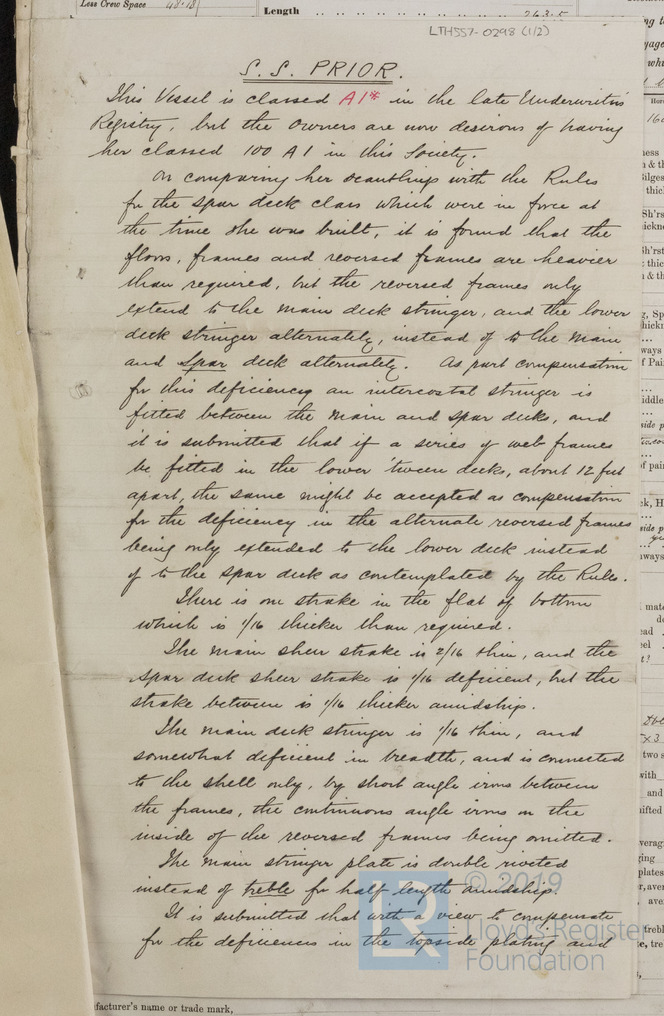 Less Crew Space 48.18
Length .. .. .. .. .. .. 263.5
LTH557-0298 (1/2)
S. S. PRIOR.
This Vessel is classed A1* in the late Underwriters
Registry, but the Owners are now desirous of having
her classed 100 A1 in this Society.
On comparing her scantlings with the Rules
for the spar deck class which were in force at
the time she was built, it is found that the
floors, frames and reversed frames are heavier
than required, but the reversed frames only
extend to the main deck stringer, and the lower
deck stringer alternately, instead of to the main
and Spar deck alternately. As part compensation
for this deficiency an intercostal stringer is
fitted between the main and spar decks, and
it is submitted that if a series of web frames
be fitted in the lower 'tween decks, about 12 feet
apart, the same might be accepted as compensation
for the deficiency in the alternate reversed frames
being only extended to the lower deck instead
of to the spar deck as contemplated by the Rules.
There is one strake in the flat of bottom
which is 1/16 thicker than required.
The main sheer strake is 2/16 thin, and the
spar deck sheer strake is 1/16 deficient, but the
strake between is 1/16 thicker amidships.
The main deck stringer is 1/16 thin, and
somewhat deficient in breadth, and is connected
to the shell only, by short angle irons between
the frames, the continuous angle irons on the
inside of the reversed frames being omitted.
The main stringer plate is double riveted
instead of treble for half length amidship.
It is submitted that with a view to compensate
for the deficiencies in the topside plating and
© 2019
Lloyd's Register
Foundation
facturer's name or trade mark,